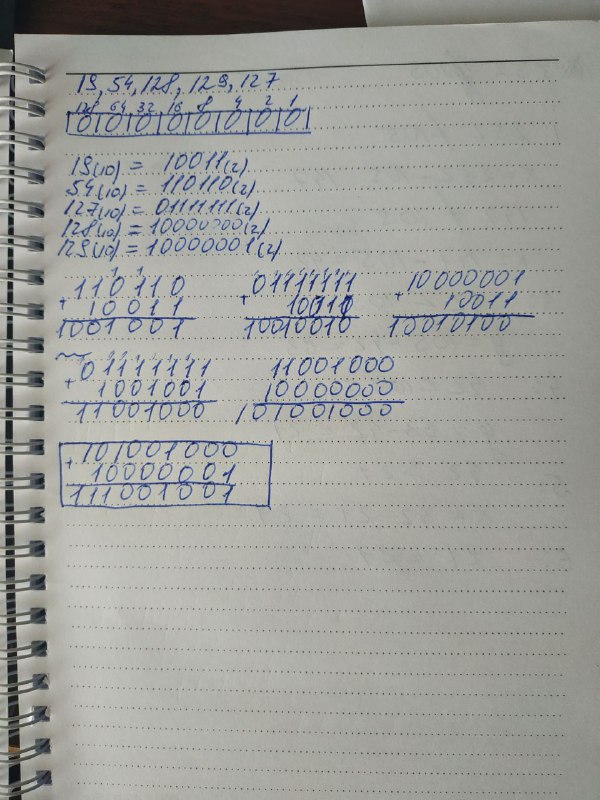 19, 54, 128, 129, 127
128 64 32 16 8 4 2 1
0 0 0 0 0 0 0 0
19(10) = 10011(2)
54(10) = 110110(2)
127(10) = 01111111(2)
128(10) = 10000000(2)
129(10) = 10000001(2)
1 1
110110 01111111 10000001
+ 10011 + 10010 + 10011
1001001 10010010 10010100
01111111 11001000
+ 1001001 10000000
11001000 101001000
101001000
+ 10000001
111001001